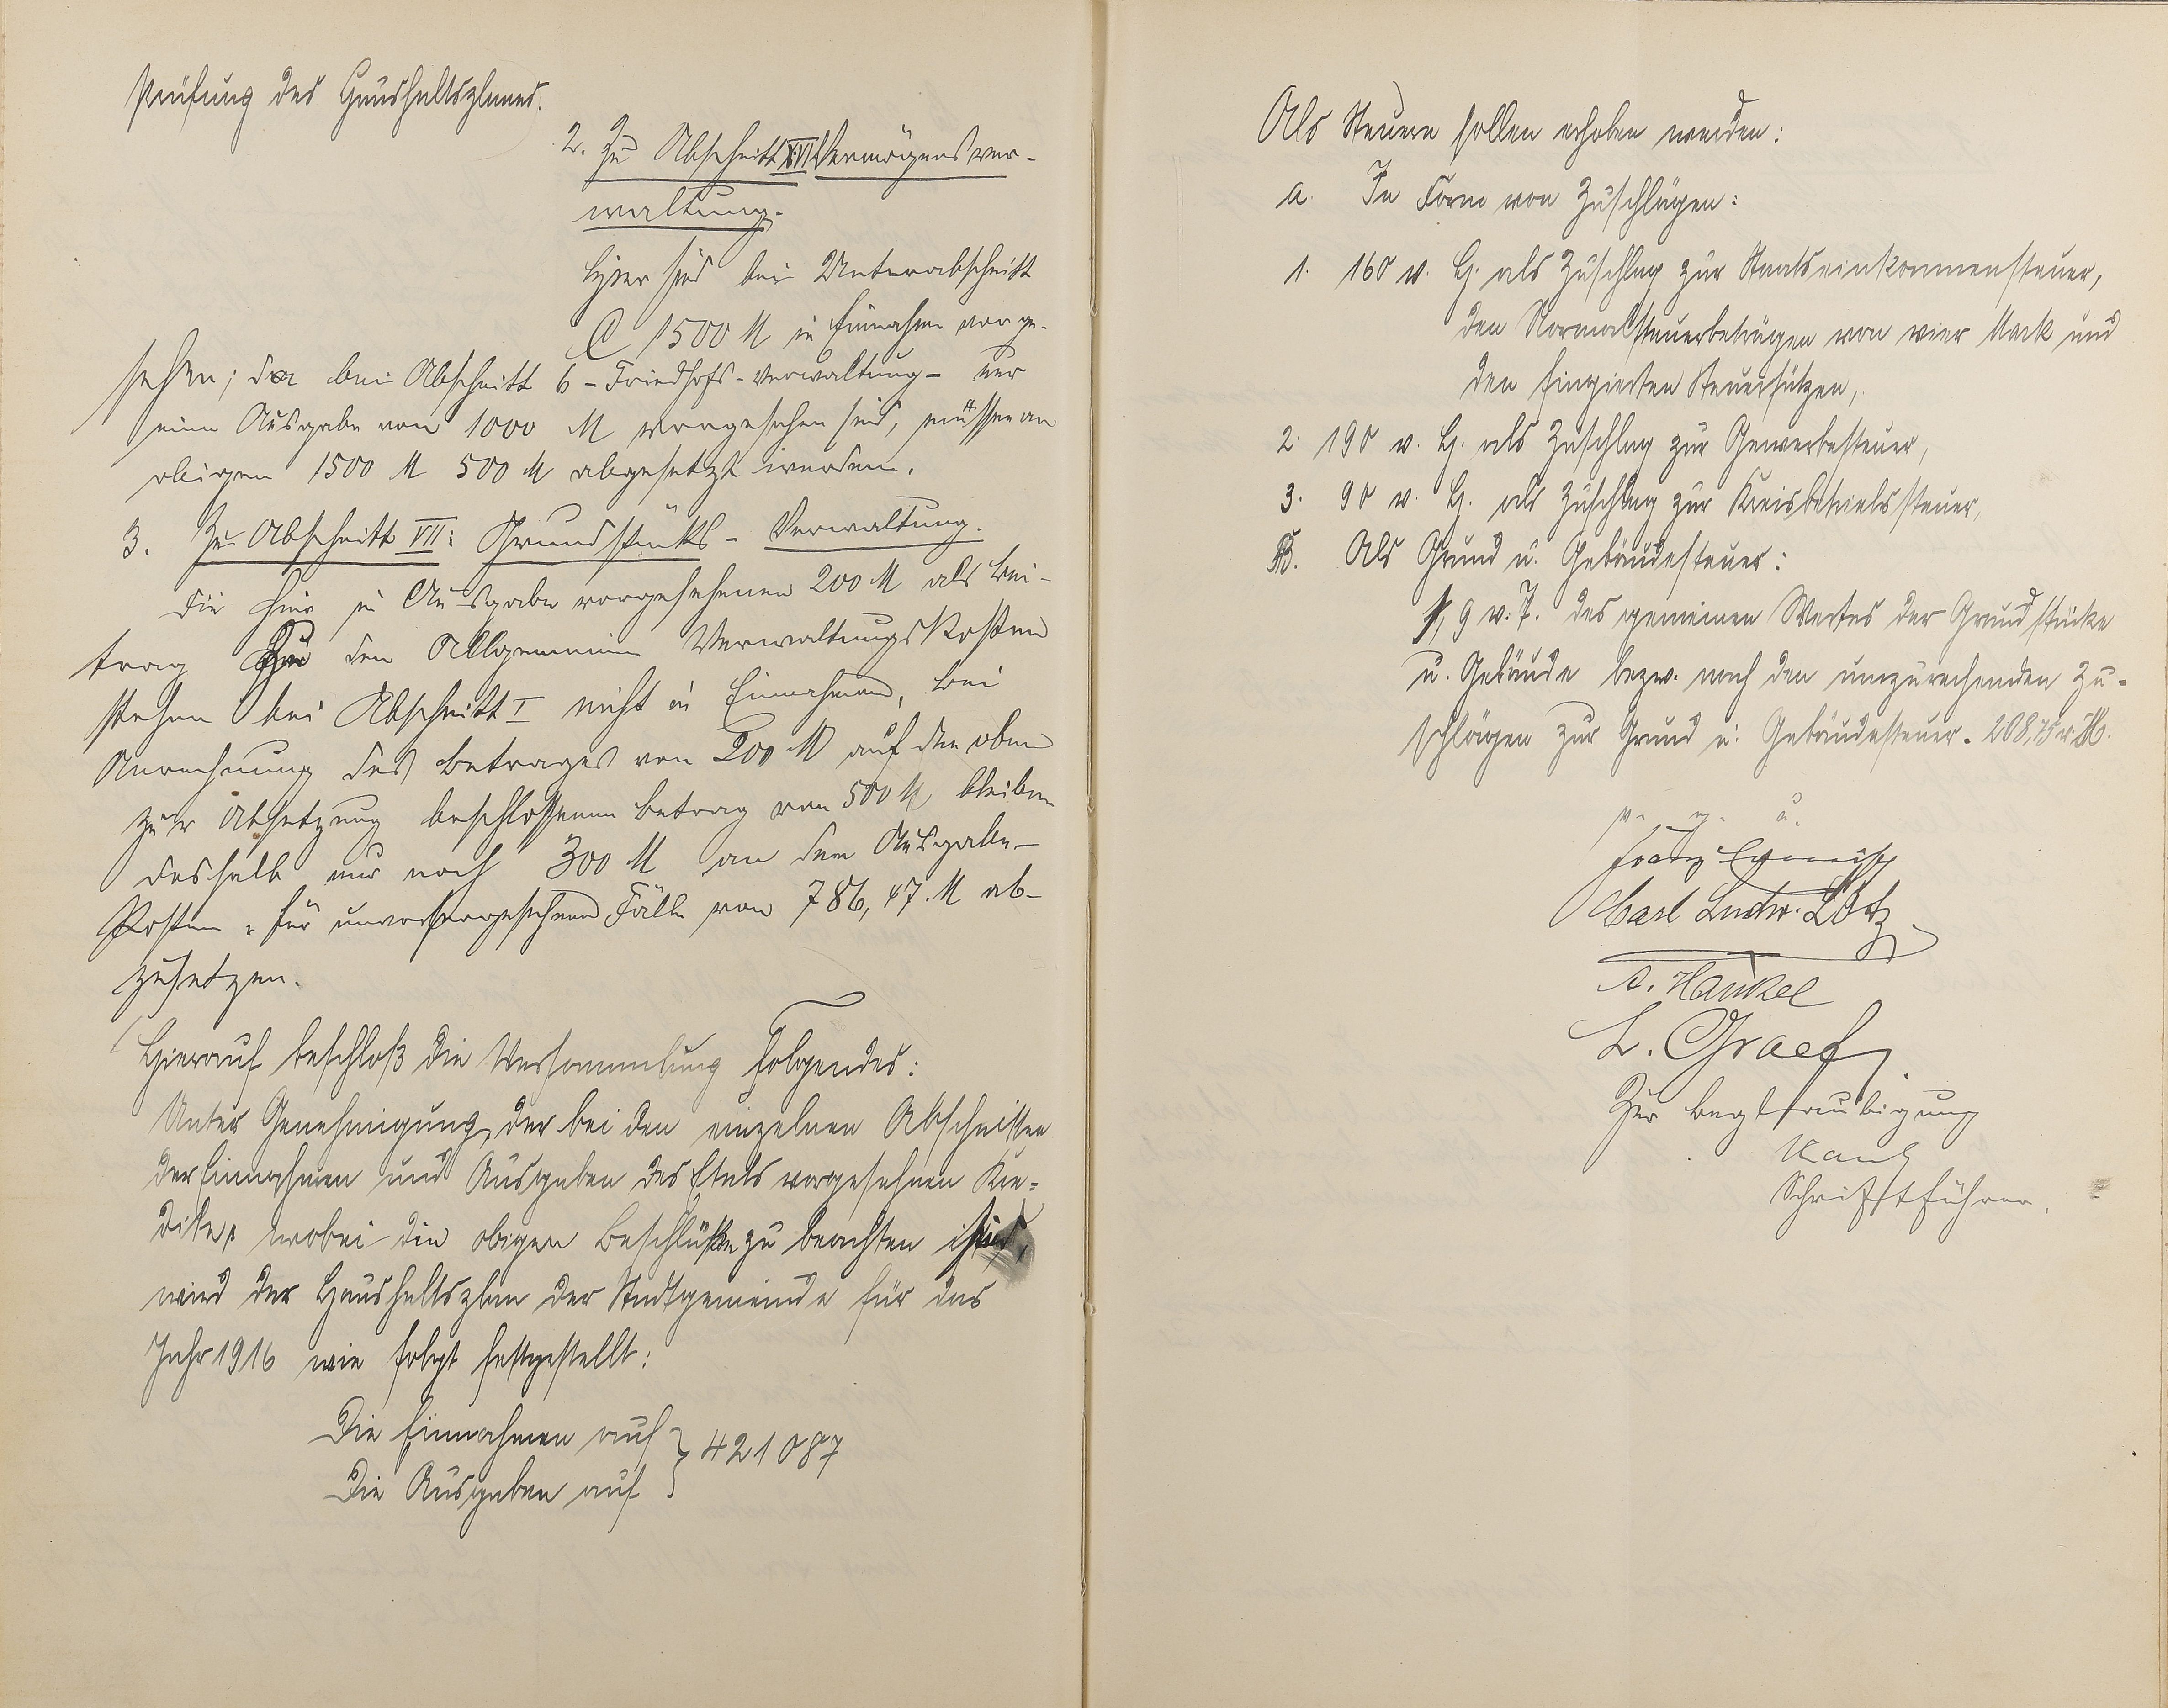 Prüfung des Haushaltsplanes.
2. Zu Abschnitt XVI Vermögensver-
waltung.
Hier sind bei Unterabschnitt
C 1500 M in Einnahme vorge-
sehen; da bei Abschnitt 6 - Friedhofs-Verwaltung - nur
eine Ausgabe von 1000 M vorgesehen sind, müssen an
obigen 1500 M 500 M abgesetzt werden.
3. Zu Abschnitt VII: Grundstücks-Verwaltung.
Die hier in Ausgabe vorgesehenen 200 M als Bei-
trag zu den Allgemeinen Verwaltungskosten
stehen bei Abschnitt I nicht in Einnahmen, bei
Anrechnung des Betrages von 200 M auf den oben
zur Absetzung beschlossenen Betrag von 500 M, bleiben
deshalb nur noch 300 M an dem Ausgabe-
Posten "für unvorhergesehene Fälle von 786,47 M ab-
zusetzen.
Hierauf beschloß die Versammlung folgendes:
Unter Genehmigung der bei den einzelnen Abschnitten
der Einnahmen und Ausgaben des Etats vorgesehenen Kre-
dite, wobei die obigen Beschlüsse zu beachten sind,
wird der Haushaltsplan der Stadtgemeinde für das
Jahr 1916 wie folgt festgestellt:
Die Einnahmen auf } 421087
Die Ausgaben auf
Als Steuern sollen erhoben werden:
a. In Form von Zuschlägen:
1. 160 v. H. als Zuschlag zur Staatseinkommensteuer,
den Normalsteuerbeträgen von vier Mark und
den fingierten Steuersätzen,
2. 190 v. H. als Zuschlag zur Gewerbesteuer,
3. 90 v. H. als Zuschlag zur Kreisbetriebssteuer,
B. Als Grund u. Gebäudesteuer:
9 v. T. des gemeinen Wertes der Grundstücke
u. Gebäude bezw. nach den umzurechenden Zu-
schlägen zur Grund u. Gebäudesteuer. 208,75 v. H.
v. g. u.
Franz
Carl Ludw. Lotz
A. Hankel
L. Graef
Zur Beglaubigung
Schriftführer.